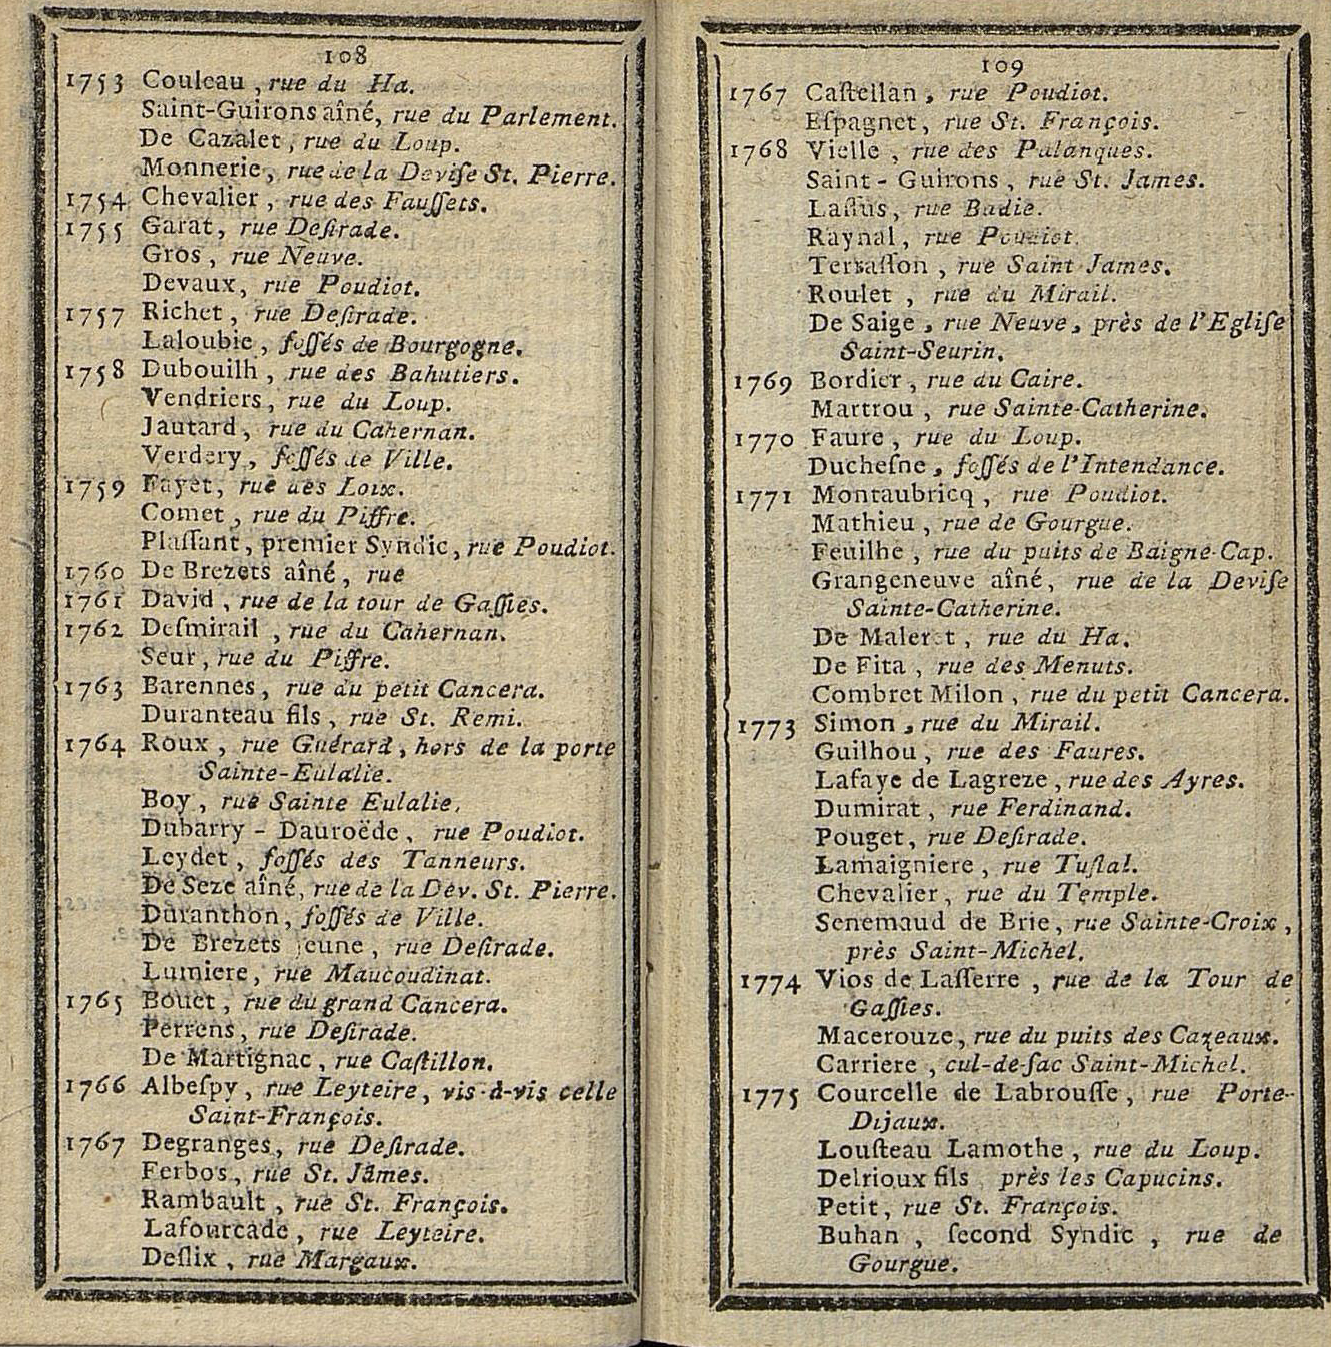 108
1753 Couleau, rue du Ha.
Saint-Guirons aîné, rue du Parlement.
De Cazalet, rue du Loup.
Monnerie, rue de la Deviſe St. Pierre.
1754 Chevalier, rue des Fauſſets.
1755 Garat, rue Deſirade.
Gros, rue Neuve.
Devaux, rue Poudiot.
1757 Richet, rue Deſirade.
Laloubie, foſſés de Bourgogne.
1758 Dubouilh, rue des Bahutiers.
Vendriers, rue du Loup.
Jautard, rue du Cahernan.
Verdery, foſſés de Ville.
1759 Fayet, rue des Loix.
Comet, rue du Piffre.
Plaſſant, premier Syndic, rue Poudiot.
1760 De Brezets aîné, rue
1761 David, rue de la tour de Gaſſies.
1762 Deſmirail, rue du Cahernan.
Seur, rue du Piffre.
1763 Barennes, rue du petit Cancera.
Duranteau fils, rue St. Remi.
1764 Roux, rue Guérard, hors de la porte
Sainte-Eulalie.
Boy, rue Sainte Eulalie,
Dubarry - Dauroëde, rue Poudiot.
Leydet, foſſés des Tanneurs.
De Seze aîné, rue de la Dev. St. Pierre.
Duranthon, foſſés de Ville.
De Brezets jeune, rue Deſirade.
Lumiere, rue Maucoudinat.
1765 Bouet, rue du grand Cancera.
Perrens, rue Deſirade.
De Martignac, rue Caſtillon.
1766 Albeſpy, rue Leyteire, vis-à-vis celle
Saint-François.
1767 Degranges, rue Deſirade.
Ferbos, rue St. Jâmes.
Rambault, rue St. François.
Lafourcade, rue Leyteire.
Deſlix, rue Margaux.
109
1767 Caſtellan, rue Poudiot.
Eſpagnet, rue St. François.
1768 Vielle, rue des Palanques.
Saint-Guirons, rue St. James.
Laſſus, rue Budie.
Raynal, rue Poudiot.
Terraſſon, rue Saint James.
Roulet, rue du Mirail.
De Saige, rue Neuve, près de l'Egliſe
Saint-Seurin.
1769 Bordier, rue du Caire.
Martrou, rue Sainte-Catherine.
1770 Faure, rue du Loup.
Ducheſne, foſſés de l'Intendance.
1771 Montaubricq, rue Poudiot.
Mathieu, rue de Gourgue.
Feuilhe, rue du puits de Baigne-Cap.
Grangeneuve aîné, rue de la Deviſe
Sainte-Catherine.
De Maleret, rue du Ha.
De Fita, rue des Menuts.
Combret Milon, rue du petit Cancera.
1773 Simon, rue du Mirail.
Guilhou, rue des Faures.
Lafaye de Lagreze, rue des Ayres.
Dumirat, rue Ferdinand.
Pouget, rue Deſirade.
Lamaigniere, rue Tuſtal.
Chevalier, rue du Temple.
Senemaud de Brie, rue Sainte-Croix,
près Saint-Michel.
1774 Vios de Laſſerre, rue de la Tour de
Gaſſies.
Macerouze, rue du puits des Cazeaux.
Carriere, cul-de-ſac Saint-Michel.
1775 Courcelle de Labrouſſe, rue Porte-
Dijaux.
Louſteau Lamothe, rue du Loup.
Delrioux fils, près les Capucins.
Petit, rue St. François.
Buhan, ſecond Syndic, rue de
Gourgue.